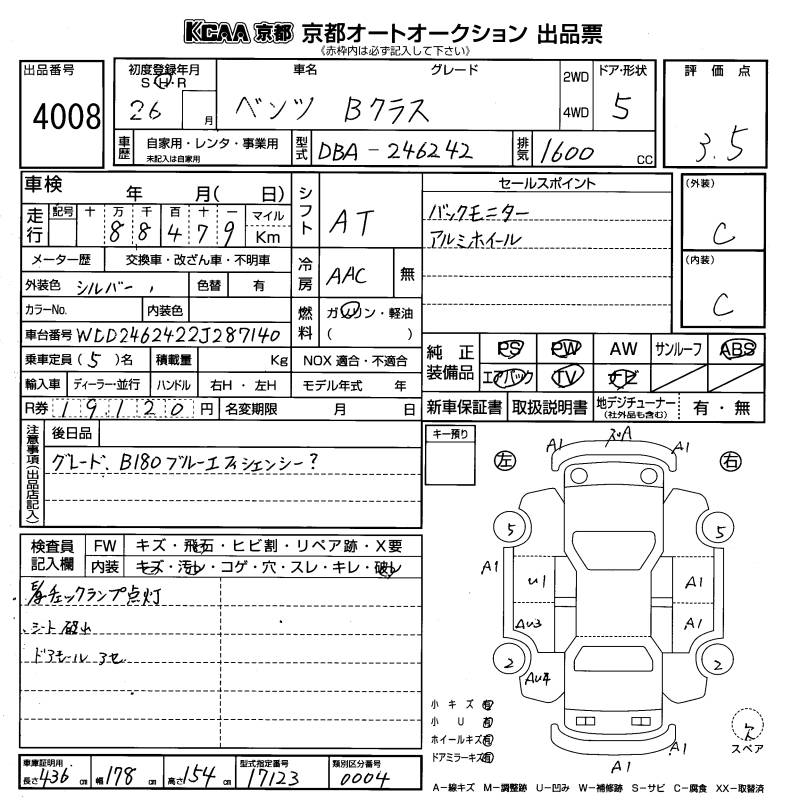 KCAA 京都 京都オートオークション 出品票
《赤枠内は必ず記入して下さい》
出品番号 4008
初度登録年月 S・H・R 26 月
車名 グレード ベンツ Bクラス
2WD 4WD
ドア・形状 5
評価点 3.5
車歴 自家用・レンタ・事業用 未記入は自家用
型式 DBA-246242
排気 1600 CC
車検 年 月( 日)
シフト AT
セールスポイント
バックモニター
アルミホイール
(外装) C
(内装) C
走行 記号 十 万 千 百 十 一 マイル Km
8 8 4 7 9
メーター歴 交換車・改ざん車・不明車
冷房 AAC 無
外装色 シルバー 色替 有
カラーNo. 内装色
燃料 ガソリン・軽油 ( )
車台番号 WDD2462422J287140
乗車定員 (5)名 積載量 Kg NOX 適合・不適合
輸入車 ディーラー・並行 ハンドル 右H・左H モデル年式 年
R券 19120円 名変期限 月 日
純正装備品 PS PW AW サンルーフ ABS
エアバック TV ナビ
新車保証書 取扱説明書 地デジチューナー (社外品も含む) 有・無
注意事項(出品店記入)
後日品
グレード、B180 ブルーエフィシェンシー?
キー預り
左 右
A1 A A1
5 5
A1 U1 A1
AU3 A1
2 2
AU4
A1 A1
検査員記入欄 FW キズ・飛石・ヒビ割・リペア跡・X要
内装 キズ・汚レ・コゲ・穴・スレ・キレ・破レ
チェックランプ点灯
シート
ドアモール アセ
小キズ 有
小U 有
ホイールキズ 有
ドアミラーキズ 有
欠
スペア
車庫証明用 長さ 436 cm 幅 178 cm 高さ 154 cm
型式指定番号 17123
類別区分番号 0004
A-線キズ M-調整跡 U-凹み W-補修跡 S-サビ C-腐食 XX-取替済